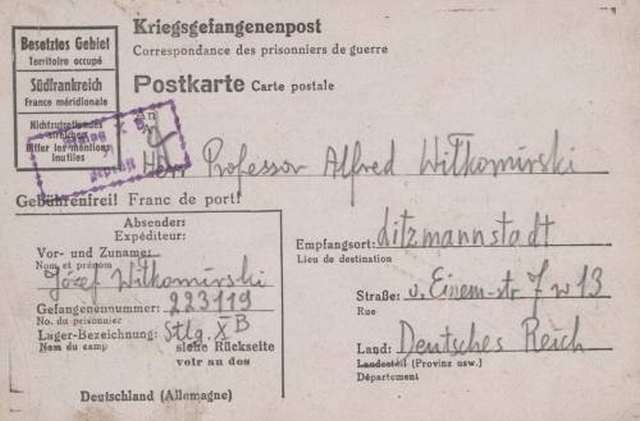 Kriegsgefangenenpost
Correspondance des prisonniers de guerre
Postkarte Carte postale
Besetztes Gebiet
Territoire occupé
Südfrankreich
France méridionale
Nichtzutreffendes
streichen
Biffer les mentions
inutiles
Stalag X B
geprüft
An
Herr Professor Alfred Wiłkomirski
Gebührenfrei! Franc de port!
Absender:
Expéditeur:
Vor- und Zuname:
Nom et prénom
Józef Wiłkomirski
Gefangenennummer: 223119
No. du prisonnier
Lager-Bezeichnung: Stlg. X B
Nom du camp
siehe Rückseite
voir au dos
Deutschland (Allemagne)
Empfangsort: Litzmannstadt
Lieu de destination
Straße: v. Einem-str 7 w 13
Rue
Land: Deutsches Reich
Landesteil (Provinz usw.)
Département